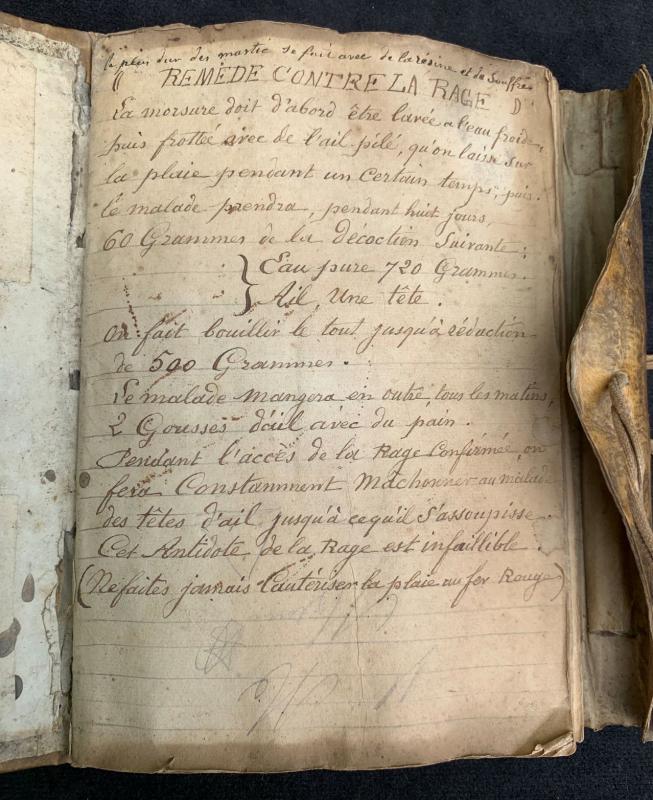 le plus dur des mastic se fait avec de la résine et du Souffre
(( REMÈDE CONTRE LA RAGE ))
La morsure doit d'abord être lavée a l'eau froide,
puis frottée avec de l'ail pilé, qu'on laisse sur
la plaie pendant un certain temps; puis
le malade prendra, pendant huit jours,
60 Grammes de la décoction suivante:
} Eau pure 720 Grammes.
} Ail, Une tête.
On fait bouillir le tout jusqu'à réduction
de 500 Grammes.
Le malade mangera en outre, tous les matins,
2 Gousses d'ail avec du pain.
Pendant l'accès de la Rage Confirmée on
fera Constamment Machonner au malade
des têtes d'ail jusqu'à ce qu'il s'assoupisse.
Cet Antidote de la Rage est infaillible.
(Ne faites jamais Cautériser la plaie au fer Rouge)